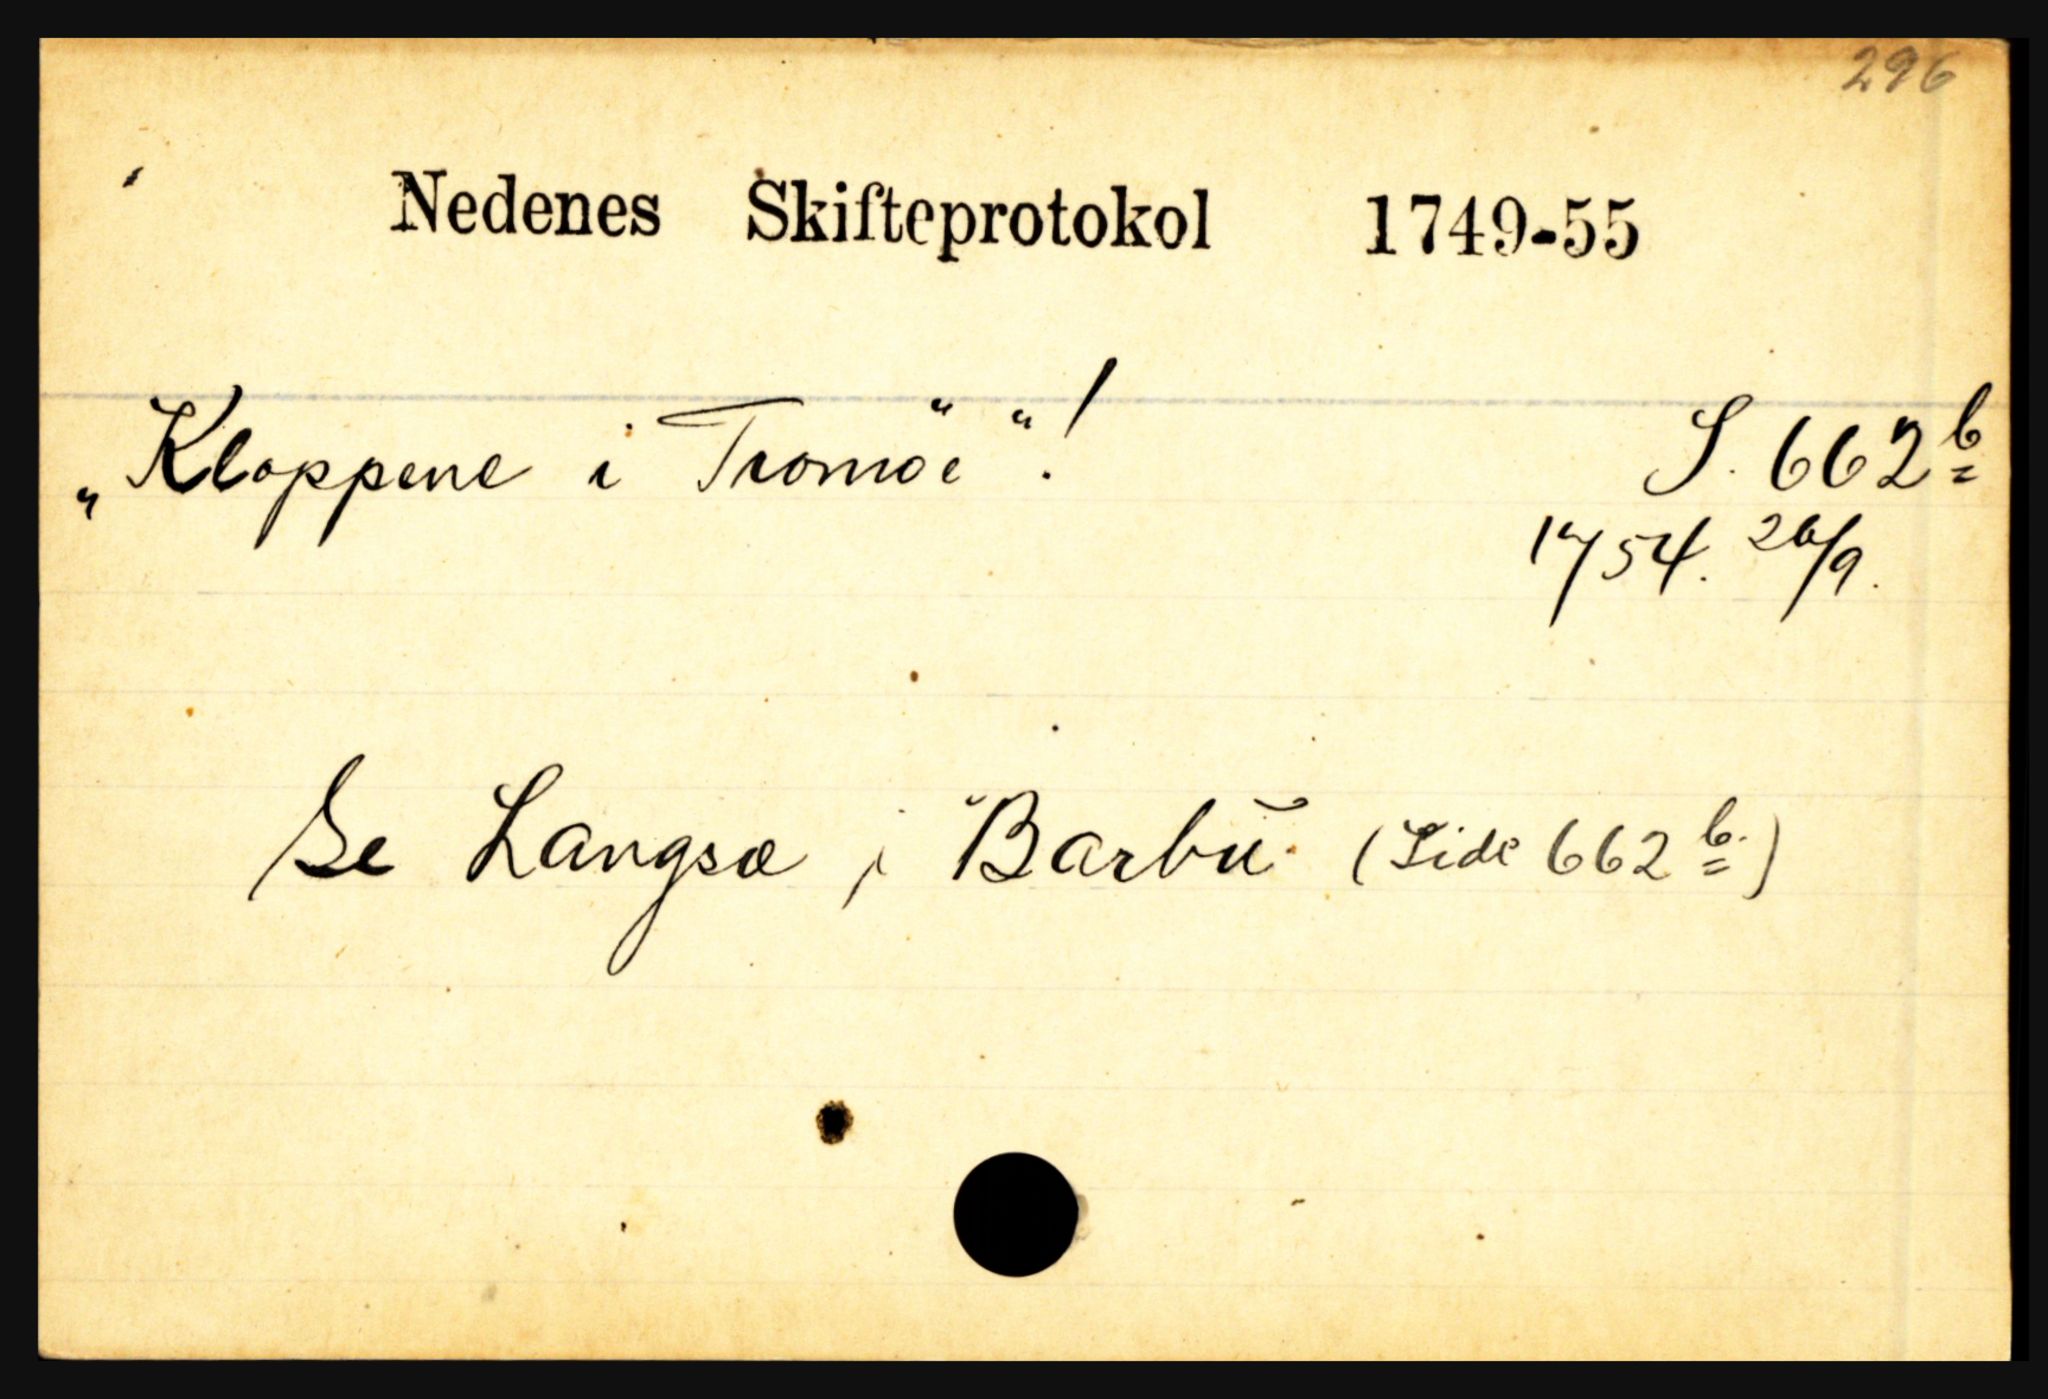 296
Nedenes Skifteprotokol 1749-55
„Kloppene i Tromöe“! S. 662 b
1754. 26/9.
Se Langsæ i Barbu (Side 662 b.)